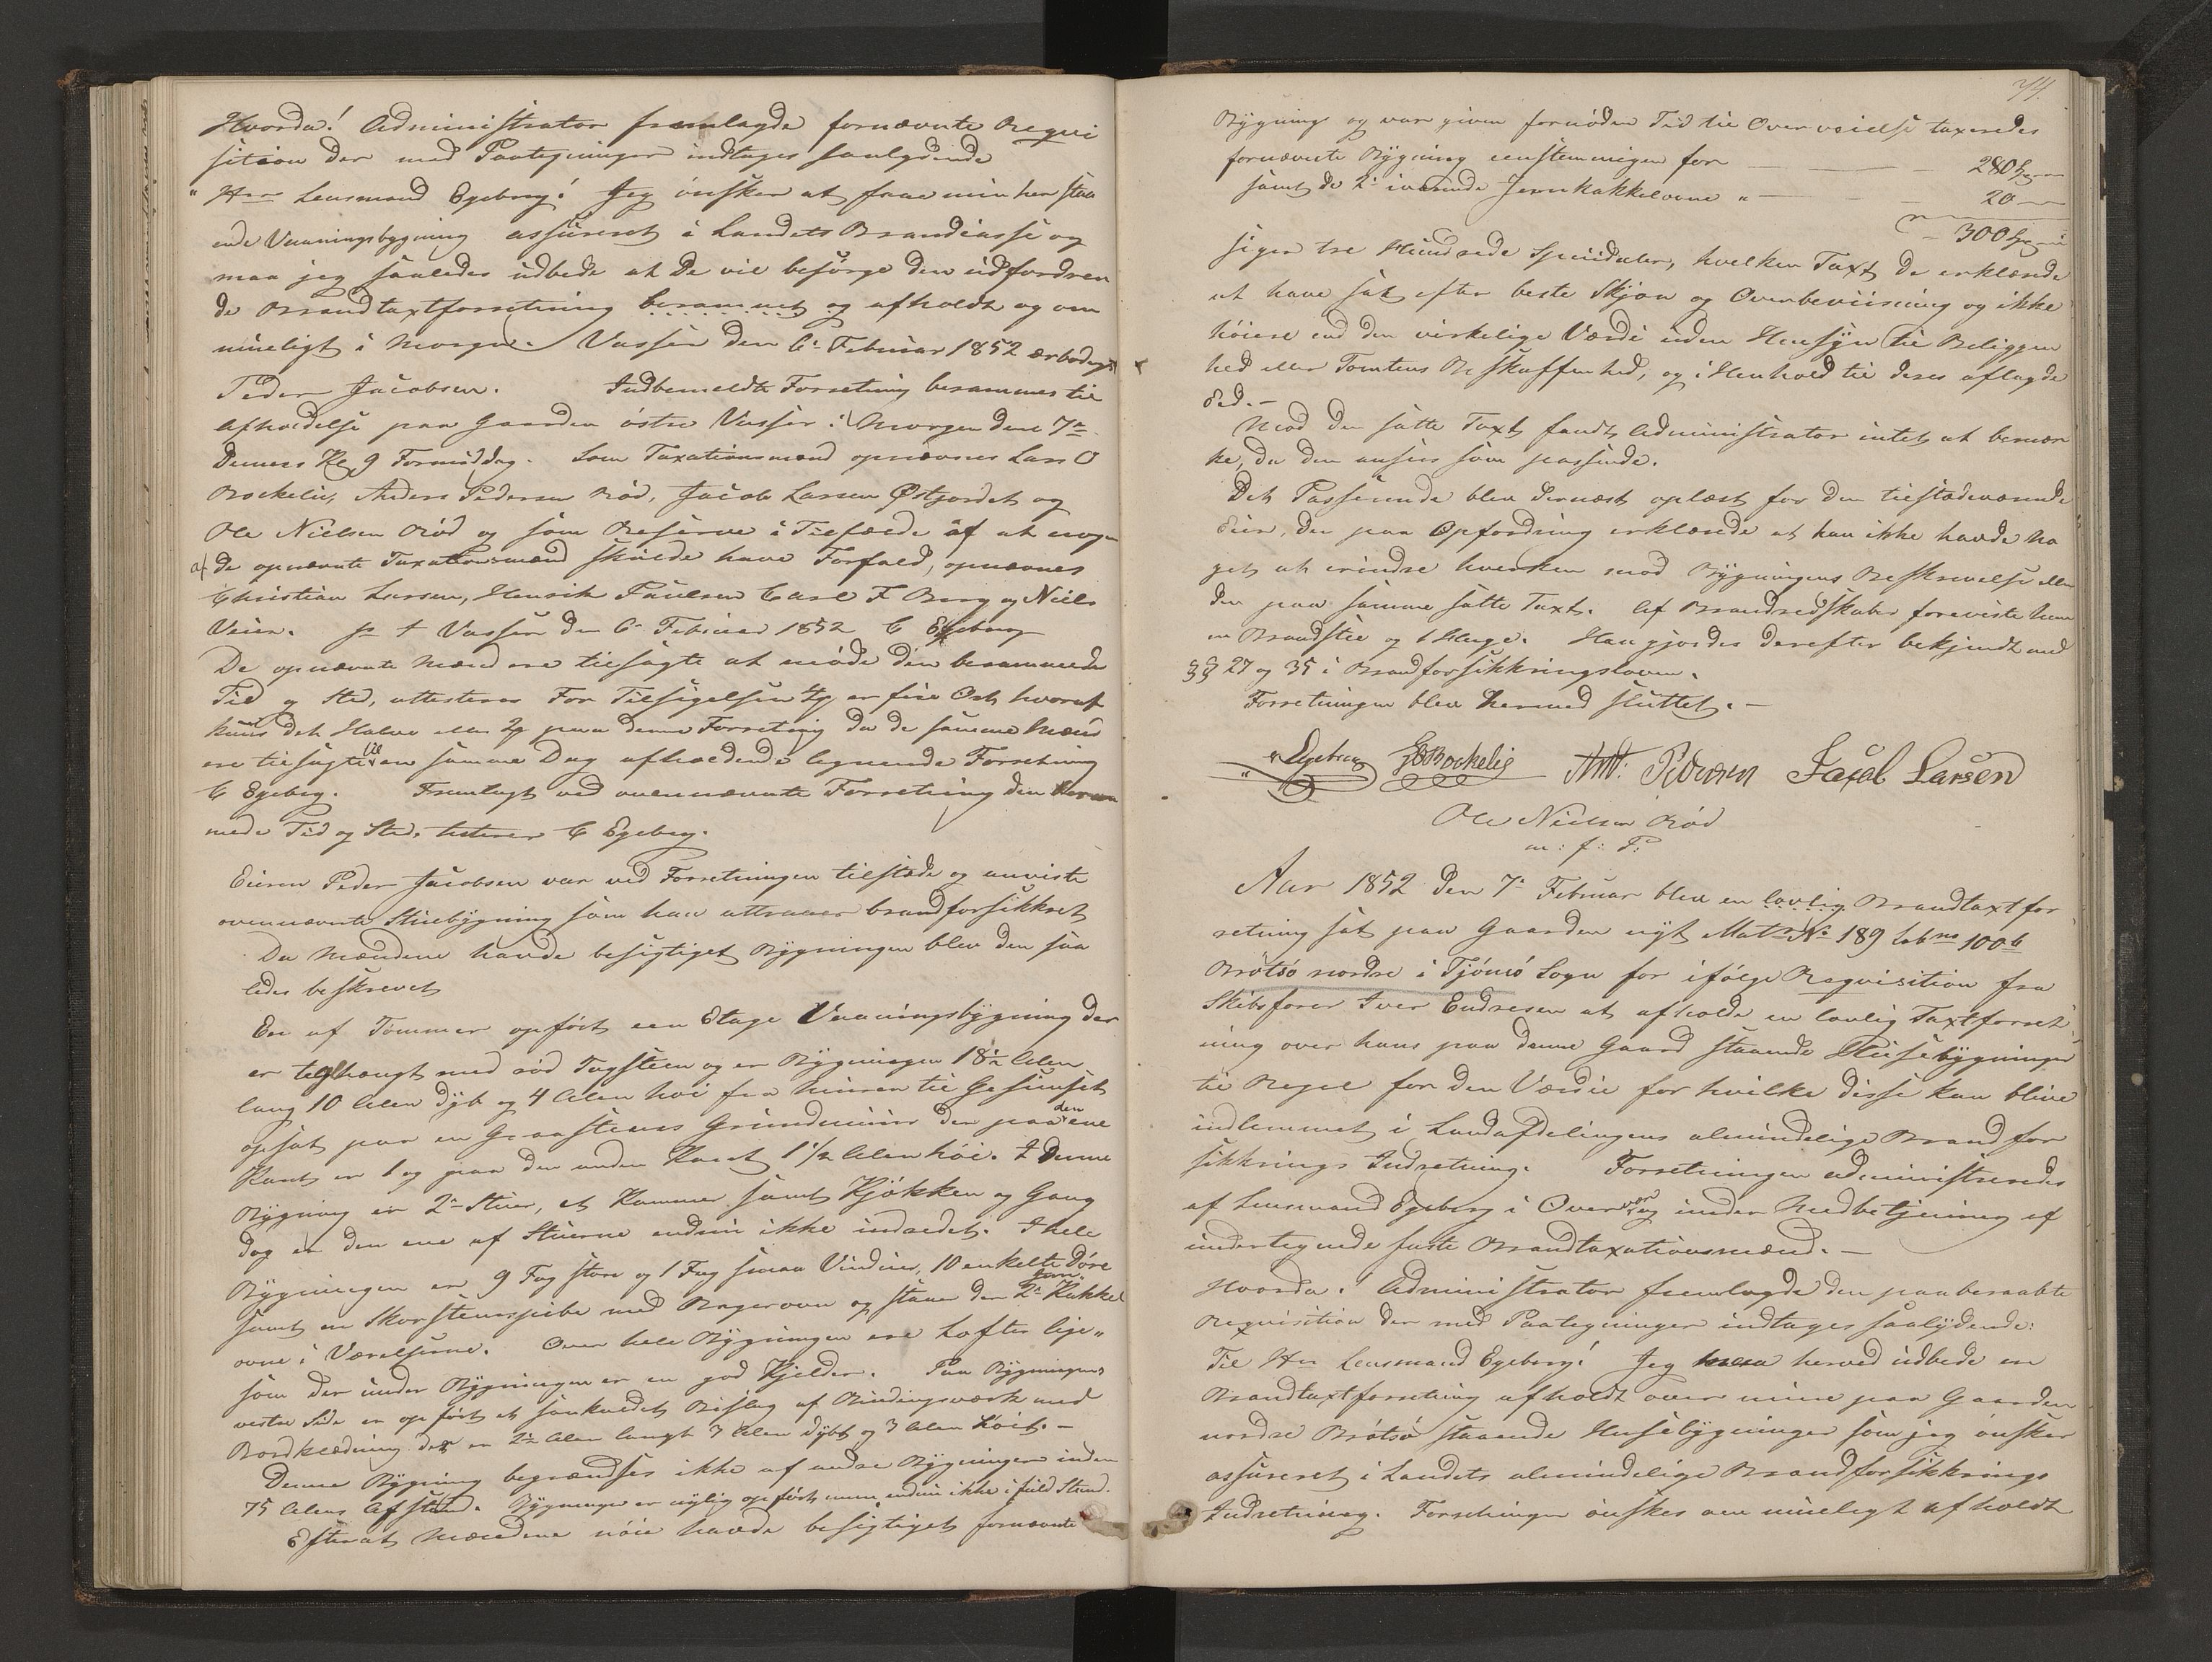 Hvorda! Administrator fremlagde fornævnte Requi
sition der med Paategninger indtages saalydende
"Herr Lensmand Egeberg! Jeg ønsker at faae min her staa
ende Vaaningsbygning assureret i Landets Brandcasse og
maa jeg saaledes udbede at De vil besørge den udfordren
de Brandtaxtforretning berammet og afholdt og om
mueligt i Morgen. Vasser den 6te Februar 1852 ærbødigst
Peder Jacobsen. Indbemeldte Forretning berammes til
Afholdelse paa Gaarden østre Vasser i Morgen den 7de
Dennes Kl 9 Formiddag. Som Taxationsmænd opnævnes Lars O
Rockelie, Anders Pedersen Rød, Jacob Larsen Østjordet og
Ole Nielsen Rød og som Reserve i Tilfælde af at nogen
af de opnævnte Taxationsmænd skulde have Forfald, opnævnes
Christian Larsen, Henrik Paulsen Carl F Berg og Niels
Veien. p t Vasser den 6te Februar 1852 C Egeberg
De opnævnte Mænd ere tilsagte at møde den berammede
Tid og Sted, attesteres For Tilsigelsen er fire Ort hvoraf
kuns det Halve eller paa denne Forretning da de samme Mænd
ere tilsagte til en samme Dag afholdende lignende Forretning
C Egeberg. Fremlagt ved ovennævnte Forretning den beram
mede Tid og Sted, testerer C Egeberg.
Eieren Peder Jacobsen var ved Forretningen tilstæde og anviste
ovennævnte Stuebygning som han attraaer brandforsikkret
Da Mændene havde besigtiget Bygningen blev den saa
ledes beskrevet
En af Tømmer opført een Etage Vaaningsbygning der
er teglhængt med rød Tagsteen og er Bygningen 18½ Alen
lang 10 Alen dyb og 4 Alen høi fra Muren til Gesimset
opsat paa en Graasteens Grundmuur der paa den ene
Kant er 1 og paa den anden Kant 1½ Alen høi. I denne
Bygning er 2de Stuer, et Kammer samt Kjøkken og Gang
dog er den ene af Stuerne endnu ikke indredet. I hele
Bygningen er 9 Fag store og 1 Fag smaa Vinduer, 10 enkelte Døre
samt en Skorsteenspibe med Bagerovn og staae der 2de Jern Kakkel
ovne i Værelserne. Over hele Bygningen ere Lofter lige"
som der under Bygningen er en god Kjelder. Paa Bygningens
vestre Side er opført et saakaldet Bislag af Bindingsværk med
Bordklædning der er 2½ Alen langt 3 Alen dybt og 3 Alen høit. –
Denne Bygning begrændses ikke af andre Bygninger inden
75 Alens Afstand. Bygningen er nylig opført men endnu ikke i fuld Stand.
Efterat Mændene nøie havde besigtiget fornævnte
74.
Bygning og var given fornøden Tid til Overveielse taxeredes
fornævnte Bygning eenstemmigen for — 280 Spd
samt de 2de iværende Jernkakkelovne " — 20 —
— 300 Spd
siger tre Hundrede Speciedaler, hvilken Taxt de erklærede
at have sat efter beste Skjøn og Overbeviisning og ikke
høiere end den virkelige Værdi uden Hensyn til Beliggen
hed eller Tomtens Beskaffenhed, og i Henhold til deres aflagde
Eed. –
Mod den satte Taxt fandt Administrator intet at bemær
ke, da den ansees som passende.
Det Passerende blev dernæst oplæst for den tilstædeværende
Eier, der paa Opfordring erklærede at han ikke havde no
get at erindre hverken mod Bygningens Beskrivelse eller
den paa samme satte Taxt. Af Brandredskaber foreviste han
en Brandstie og 1 Hage. Han gjordes derefter bekjendt med
§§ 27 og 35 i Brandforsikkringsloven.
Forretningen blev hermed sluttet. –
Egeberg LORockelig And: Pedersen Jacob Larsen
Ole Nielsen Rød
m: f: P:
Aar 1852 den 7de Februar blev en lovlig Brandtaxtfor
retning sat paa Gaarden nyt Matr No 189 Lobno 100b
Brøtsø nordre i Tjømø Sogn for ifølge Reqvisition fra
Skibsfører Iver Endresen at afholde en lovlig Taxtforret
ning over hans paa denne Gaard staaende Huusebygninger
til Regel for den Værdie for hvilke disse kan blive
indlemmet i Landafdelingens almindelige Brandfor
sikkrings Indretning. Forretningen administreredes
af Lensmand Egeberg i Overvær og under Medbetjening af
undertegnede faste Brandtaxationsmænd. –
Hvorda! Administrator fremlagde den paaberaabte
Reqvisition der med Paategninger indtages saalydende:
Til Hr Lensmand Egeberg! Jeg maa herved udbede en
Brandtaxtforretning afholdt over mine paa Gaarden
nordre Brøtsø staaende Husebygninger som jeg ønsker
assureret i Landets almindelige Brandforsikkrings
Indretning. Forretningen ønskes om mueligt afholdt